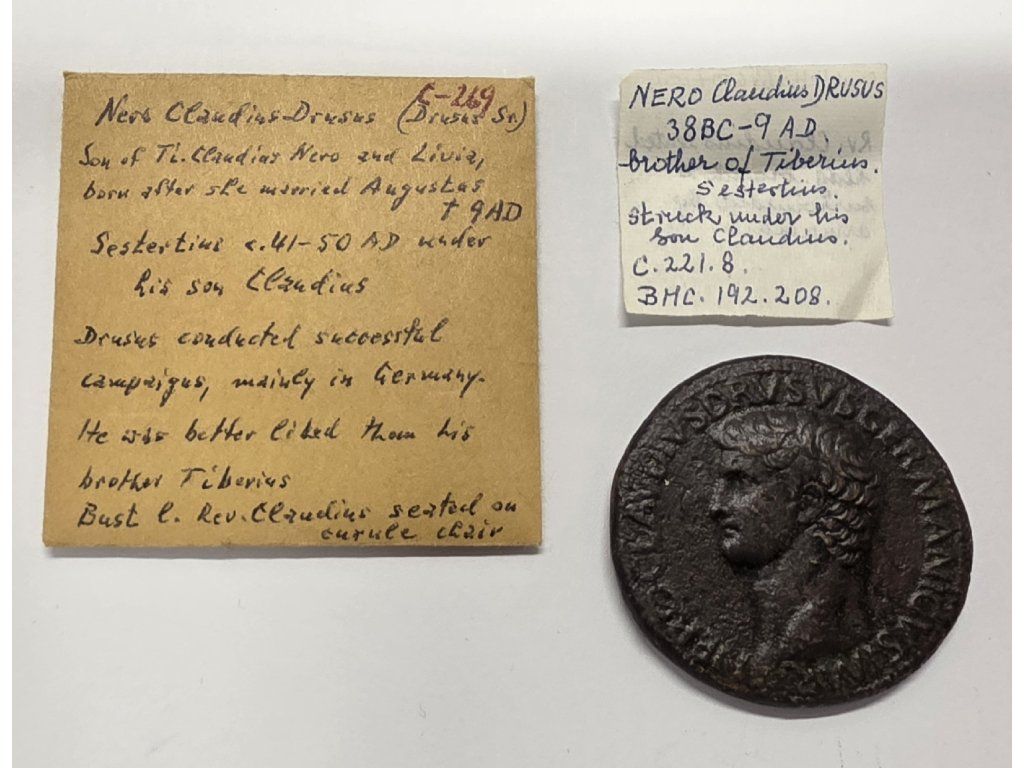 C-269
Nero Claudius-Drusus (Drusus Sr.)
Son of Ti. Claudius Nero and Livia,
born after she married Augustus
† 9 AD
Sestertius c. 41-50 AD under
his son Claudius
Drusus conducted successful
campaigns, mainly in Germany.
He was better liked than his
brother Tiberius
Bust l. Rev. Claudius seated on
curule chair
NERO Claudius DRUSUS
38BC-9 AD
brother of Tiberius.
Sestertius.
struck under his
son Claudius.
C. 221. 8.
BMC. 192. 208.
CLAVDIVS DRVSVS GERMANICVS IMP